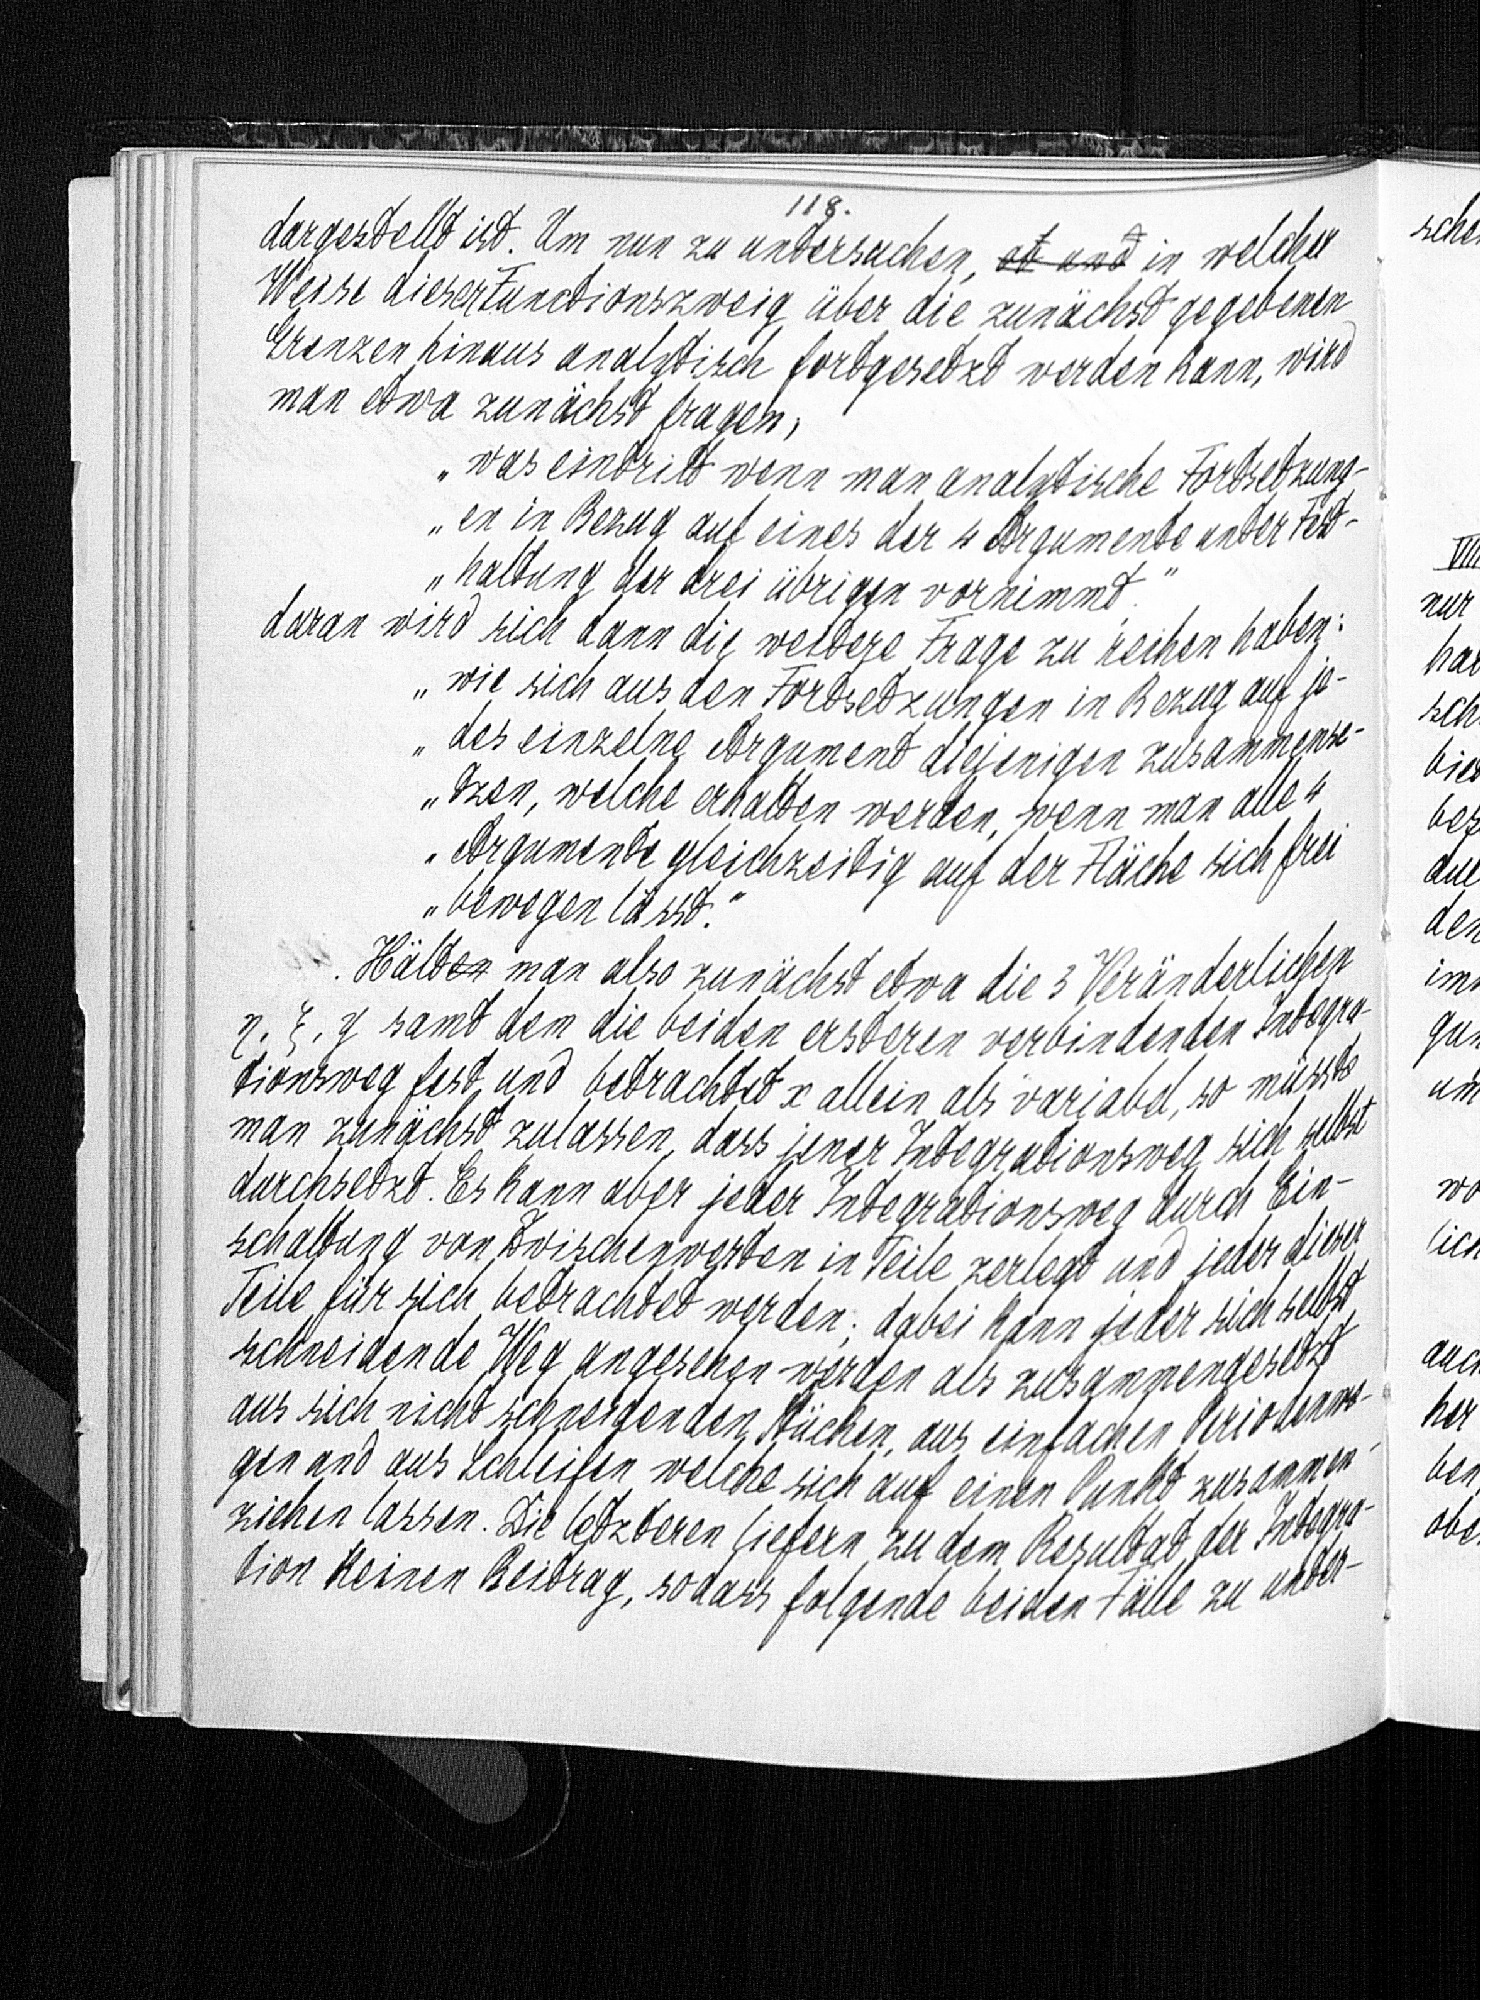 118.
dargestellt ist. Um nun zu untersuchen, ob und in welcher
Weise dieser Functionszweig über die zunächst gegebenen
Grenzen hinaus analytisch fortgesetzt werden kann, wird
man etwa zunächst fragen,
„was eintritt wenn man analytische Fortsetzung-
„en in Bezug auf eines der 4 Argumente unter Fest-
„haltung der drei übrigen vornimmt."
daran wird sich dann die weitere Frage zu reihen haben:
„wie sich aus den Fortsetzungen in Bezug auf je-
„des einzelne Argument diejenigen zusammense-
„tzen, welche erhalten werden, wenn man alle 4
„Argumente gleichzeitig auf der Fläche sich frei
„bewegen lässt."
Hält man also zunächst etwa die 3 Veränderlichen
η, ξ, y samt dem die beiden ersteren verbindenden Integra-
tionsweg fest und betrachtet x allein als variabel, so müsste
man zunächst zulassen, dass jener Integrationsweg sich selbst
durchsetzt. Es kann aber jeder Integrationsweg durch Ein-
schaltung von Zwischenwerten in Teile zerlegt und jeder dieser
Teile für sich betrachtet werden; dabei kann jeder sich selbst
schneidende Weg angesehen werden als zusammengesetzt
aus sich nicht schneidenden Stücken, aus einfachen Periodenwe-
gen und aus Schleifen welche sich auf einen Punkt zusammen-
ziehen lassen. Die letzteren liefern zu dem Resultat der Integra-
tion keinen Beitrag, sodass folgende beiden Fälle zu unter-
sche
VIII
nur
ha
sch
bes
den
im
um
wo
lich
auch
her
ben
obe